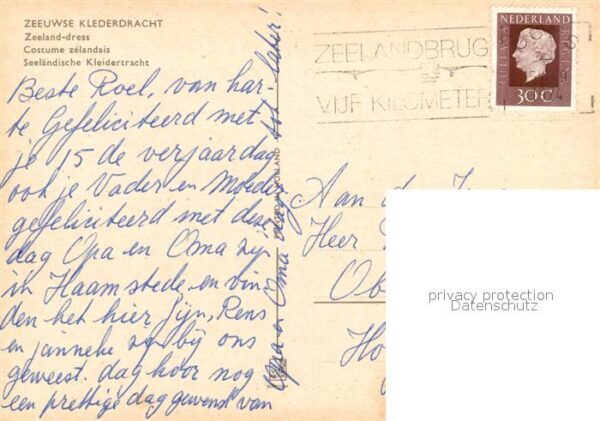 ZEEUWSE KLEDERDRACHT
Zeeland-dress
Costume zélandais
Seeländische Kleidertracht
Beste Roel, van har-
te Gefeliciteerd met
je 15 de verjaardag
ook je Vader en Moeder
gefeliciteerd met deze
dag Opa en Oma zijn
in Haamstede en vin
den het hier fijn, Rens
en janneke zijn bij ons
geweest. dag hoor nog
een prettige dag gewenst van
Opa en Oma
tot later!
ZEELANDBRUG
VIJF KILOMETER
NEDERLAND
JULIANA REGINA
30c
Aan de
Heer
Ob
Ho
privacy protection
Datenschutz